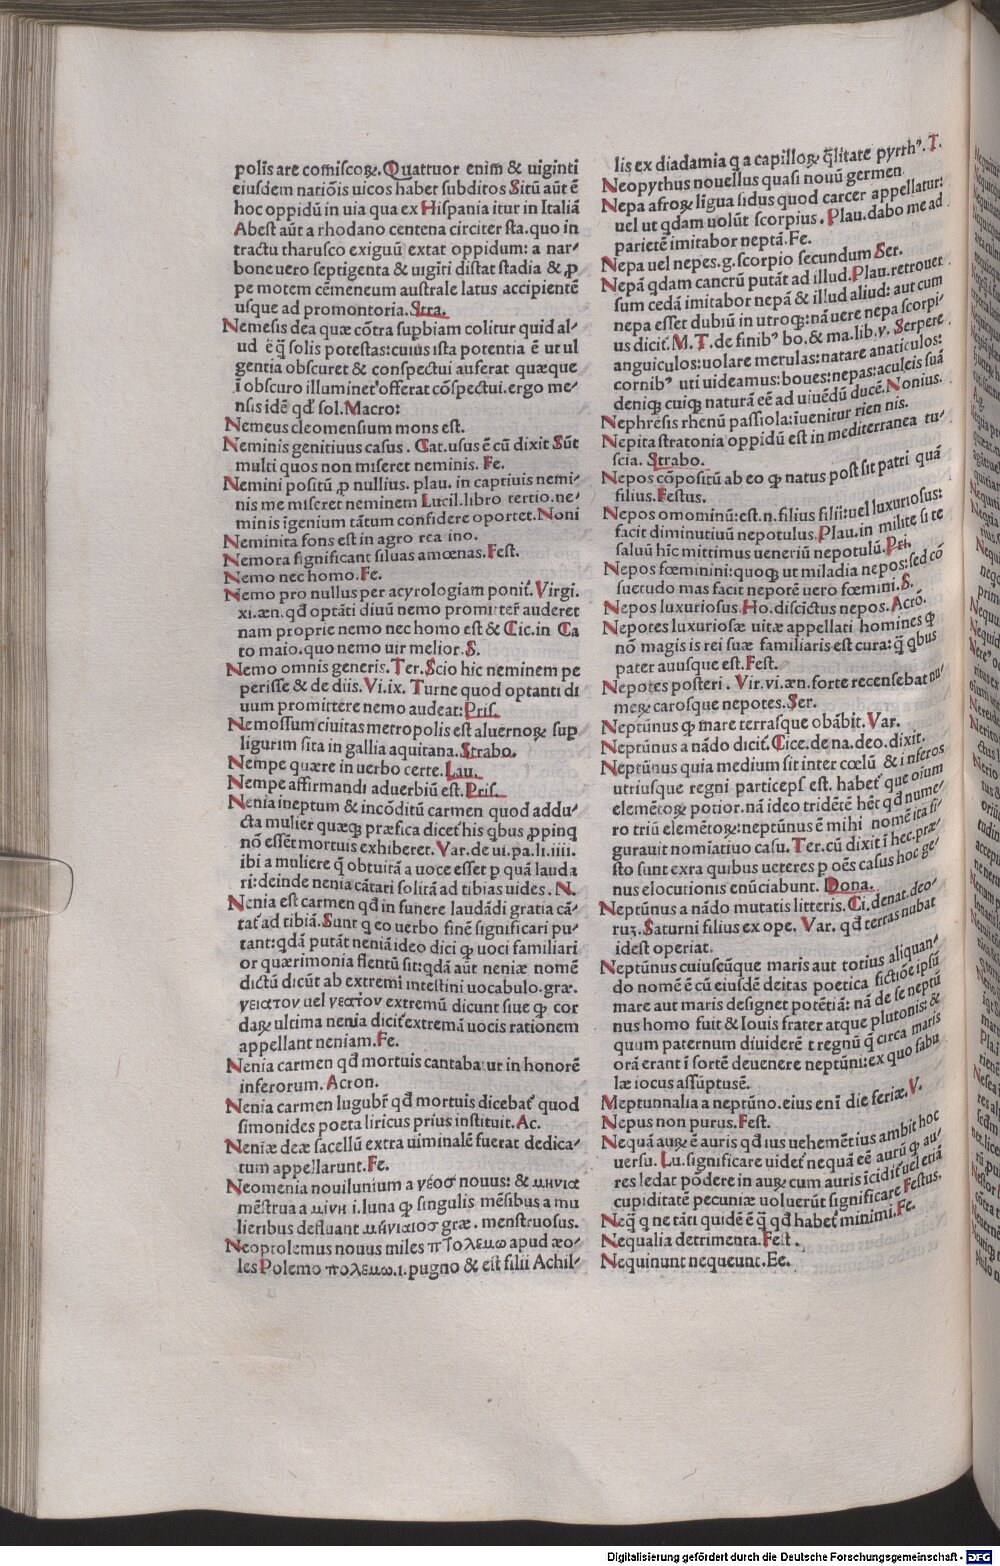 polis are comiscoꝝ. Quattuor enim̄ & uiginti
eiusdem natiōis uicos habet subditos Sitū aūt ē
hoc oppidū in uia qua ex Hispania itur in Italiā
Abest aūt a rhodano centena circiter sta. quo in
tractu tharusco exiguū extat oppidum: a nar⸗
bone uero septigenta & uigiti distat stadia & ꝓ
pe motem cēmeneum australe latus accipientē
usque ad promontoria. Stra.
Nemesis dea quæ cōtra supbiam colitur quid al⸗
ud ē q̄ solis potestas: cuius ista potentia ē ut ul
gentia obscuret & conspectui auferat quæque
ī obscuro illuminet offerat cōspectui. ergo me⸗
nsis idē qđ sol. Macro:
Nemeus cleomensium mons est.
Neminis genitiuus casus. Cat. usus ē cū dixit Sūt
multi quos non miseret neminis. Fe.
Nemini positū ꝓ nullius. plau. in captiuis nemi⸗
nis me miseret neminem Lucil. libro tertio. ne⸗
minis īgenium tātum confidere oportet. Noni
Neminita fons est in agro rea ino.
Nemora significant siluas amœnas. Fest.
Nemo nec homo. Fe.
Nemo pro nullus per acyrologiam ponit. Virgi.
xi. æn. qđ optāti diuū nemo promitteř auderet
nam proprie nemo nec homo est & Cic. in Ca
to maio. quo nemo uir melior. S.
Nemo omnis generis. Ter. Scio hic neminem pe
perisse & de diis. Vi. ix. Turne quod optanti di
uum promittere nemo audeat: Pris.
Nemossum ciuitas metropolis est aluernoꝝ sup
ligurim sita in gallia aquitana. Strabo.
Nempe quære in uerbo certe. Lau.
Nempe affirmandi aduerbiū est. Pris.
Nenia ineptum & incōditū carmen quod addu⸗
cta mulier quæꝙ præfica dicet his qbus ꝓpinq
nō essēt mortuis exhiberet. Var. de ui. pa. li. iiii.
ibi a muliere q̄ obtuitā a uoce esset p quā lauda
ri: deinde nenia cātari solitā ad tibias uides. N.
Nenia est carmen qđ in funere laudādi gratia cā⸗
tat ad tibiā. Sunt q eo uerbo finē significari pu⸗
tant: qdā putāt neniā ideo dici ꝙ uoci familiari
or quærimonia flentū sit: qdā aūt neniæ nomē
dictū dicūt ab extremi intestini uocabulo. græ.
νειατον uel νεατον extremū dicunt siue ꝙ cor
daꝝ ultima nenia dicit extremā uocis rationem
appellant neniam. Fe.
Nenia carmen qđ mortuis cantabatur in honorē
inferorum. Acron.
Nenia carmen lugubř qđ mortuis dicebat quod
simonides poeta liricus prius instituit. Ac.
Neniæ deæ sacellū extra uiminalē fuerat dedica⸗
tum appellarunt. Fe.
Neomenia nouilunium a νέοσ nouus: & μηνια
mēstrua a μίνη i. luna ꝙ singulis mēsibus a mu
lieribus defluant μήνιαιοσ græ. menstruosus.
Neoptolemus nouus miles πτολεμω apud æo⸗
les Polemo πολεμω. i. pugno & est filii Achil⸗
lis ex diadamia q a capilloꝝ q̄litate pyrrhꝰ. T.
Neopythus nouellus quasi nouū germen
Nepa afroꝝ ligua sidus quod carcer appellatur:
uel ut qdam uolūt scorpius. Plau. dabo me ad
parietē imitabor neptā. Fe.
Nepa uel nepes. g. scorpio secundum Ser.
Nepā qdam cancrū putāt ad illud. Plau. retrouer
sum cedā imitabor nepā & illud aliud: aut cum
nepa esset dubiū in utroꝙ: nā uere nepa scorpi⸗
us dicit. M. T. de finibꝰ bo. & ma. lib. y. Serpere
anguiculos: uolare merulas: natare anaticulos:
cornibꝰ uti uideamus: boues: nepas: aculeis suā
deniꝙ cuiꝙ naturā eē ad uiuēdū ducē. Nonius.
Nephresis rhenū passiola: iuenitur rien nis.
Nepita stratonia oppidū est in mediterranea tu⸗
scia. Strabo.
Nepos cōpositū ab eo ꝙ natus post sit patri quā
filius. Festus.
Nepos omominū: est. n. filius filii: uel luxuriosus:
facit diminutiuū nepotulus. Plau. in milite si te
saluū hic mittimus ueneriū nepotulū. Pri.
Nepos fœminini: quoꝙ ut miladia nepos: sed cō
suetudo mas facit nepotē uero fœmini. S.
Nepos luxuriosus. Ho. discictus nepos. Acrō.
Nepotes luxuriosæ uitæ appellati homines ꝙ
nō magis is rei suæ familiaris est cura: q̄ qbus
pater auusque est. Fest.
Nepotes posteri. Vir. vi. æn. forte recensebat nu⸗
meꝝ carosque nepotes. Ser.
Neptūnus ꝙ mare terrasque obābit. Var.
Neptūnus a nādo dicit. Cice. de na. deo. dixit.
Neptūnus quia medium sit inter cœlū & inferos
utriusque regni particeps est. habet que oīum
elemētoꝝ potior. nā ideo tridētē hēt qđ nume⸗
ro triū elemētoꝝ: neptūnus ē mihi nomē ita fi⸗
gurauit nomiatiuo casu. Ter. cū dixit ī hec. præ⸗
sto sunt exra quibus ueteres p oēs casus hoc ge⸗
nus elocutionis enūciabunt. Dona.
Neptūnus a nādo mutatis litteris. Ci. denat. deo⸗
ruꝫ. Saturni filius ex ope. Var. qđ terras nubat
idest operiat.
Neptūnus cuiuscūque maris aut totius aliquan⸗
do nomē ē cū eiusdē deitas poetica fictiōe ipsū
mare aut maris designet potētiā: nā de se neptū
nus homo fuit & Iouis frater atque plutonis: &
quum paternum diuiderēt regnū q̄ circa maris
orā erant ī sortē deuenere neptūni: ex quo fabu
læ iocus assūptusē.
Meptunnalia a neptūno. eius enī die feriæ. V.
Nepus non purus. Fest.
Nequā auꝝ ē auris qđ ius uehemētius ambit hoc
uersu. Lu. significare uidet nequā eē aurū ꝙ au⸗
res ledat pōdere in auꝝ cum auris icidit uel etiā
cupiditatē pecuniæ uoluerūt significare Festus.
Neq̄ q ne tāti quidē ē q̄ qđ habet minimi. Fe.
Nequalia detrimenta. Fest.
Nequinunt nequeunt. Ee.
Digitalisierung gefördert durch die Deutsche Forschungsgemeinschaft - DFG